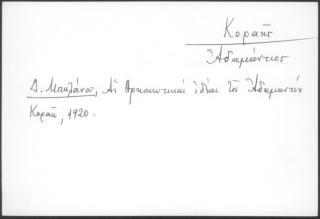 Κοραῆς
Ἀδαμάντιος
Δ. Μπαλάνος, Αἱ θρησκευτικαὶ ἰδέαι τοῦ Ἀδαμαντίου
Κοραῆ, 1920.